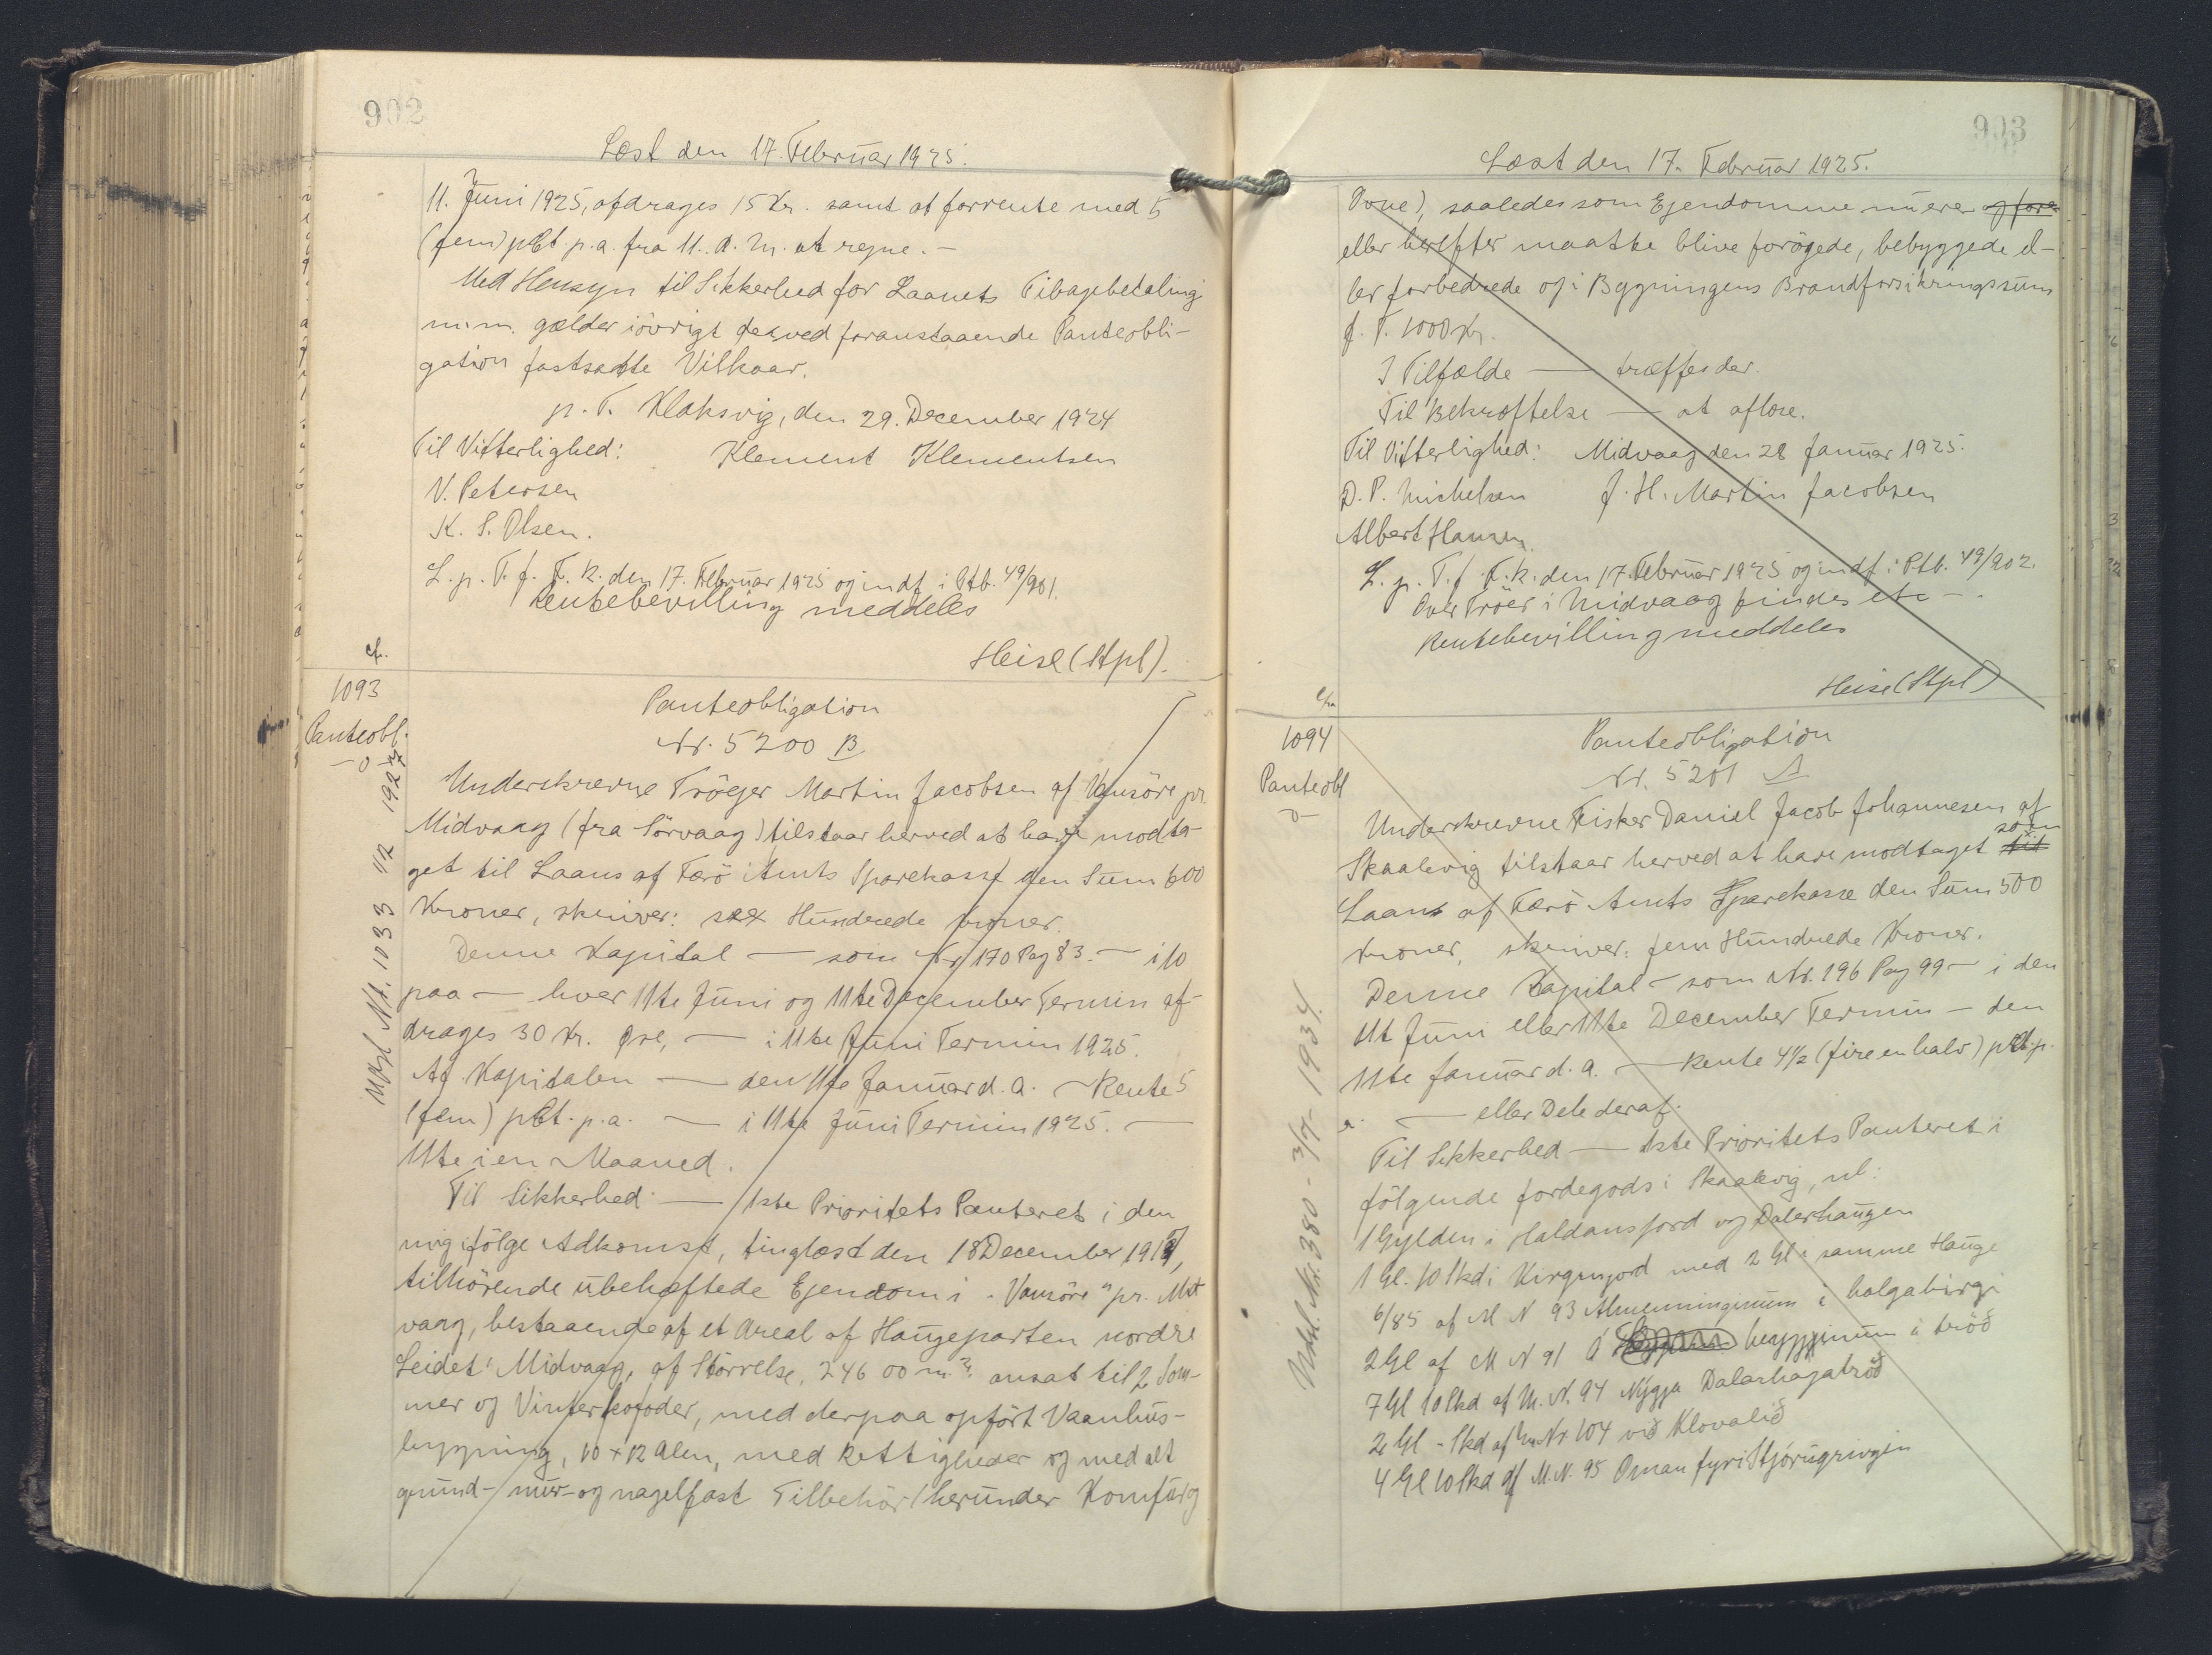 902
Læst den 17. Februar 1925.
11. Juni 1925, afdrages 15 Kr. samt at forrente med 5
(fem) pCt. p.a. fra 11. d. M. at regne. –
Med Hensyn til Sikkerhed for Laanets Tibagebetaling
m.m. gælder iövrigt de ved foranstaaende Panteobli-
gation fastsatte Vilkaar.
p. T. Klaksvig, den 29. December 1924
Til Vitterlighed: Klement Klementsen
V. Petersen
K. S. Olsen.
L. p. T. f. F. K. den 17. Februar 1925 og indf. i Ptb. 49/901.
Rentebevilling meddeles
Heise (Stpl).
cfr.
1093
Panteobl.
– o –
Udsl Nr. 1033 11/12 1927
Panteobligation
Nr. 5200 B
Underskrevne Tröger Martin Jacobsen af Vansöre pr.
Midvaag (fra Sörvaag) tilstaar herved at have modta-
get til Laans af Færö Amts Sparekasse den Sum 600
Kroner, skriver: sex Hundrede Kroner.
Denne Kapital — som Nr 170 Pag 83. — i 10
paa — hver 11te Juni og 11te December Termin af-
drages 30 Kr. Øre, — i 11te Juni Termin 1925.
Af Kapitalen — den 11te Januar d. a. – Rente 5
(fem) pCt. p. a. — i 11te Juni Termin 1925. —
11te i en Maaned.
Til Sikkerhed — 1ste Prioritets Panteret i den
mig ifölge Adkomst, tinglæst den 18 December 1917,
tilhörende ubehæftede Ejendom i "Vansöre" pr. Mid
vaag, bestaaende af et Areal af Haugeparten nordre
Leidet i Midvaag, af Störrelse, 246 00 m² ansat til 2 Som-
mer og Vinterkofoder, med derpaa opfört Vaanhus-
bygning, 10 + 12 Alen, med Rettigheder og med alt
grund- mur- og nagelfast Tilbehör (herunder Komfurg
903
Læst den 17. Februar 1925.
Ovne), saaledes som Ejendomme nu er er og fore
eller herefter maatte blive forögede, bebyggede el-
ler forbedrede og i Bygningens Brandforsikringssum
f. T. 1000 Kr.
I Tilfælde — træffes der.
Til Bekræftelse — at aflæse.
Til Vitterlighed: Midvaag den 28 Januar 1925.
D. P. Michelsen J. H. Martin Jacobsen
Albert Hansen
L. p. T. f. F. K. den 17. Februar 1925 og indf. i Ptb. 49/902.
Over Tröer i Midvaag findes etc –.
Rentebevilling meddeles
Heise (Stpl)
cfr.
1094
Panteobl
– o –
Udsl. Nr. 380 - 3/7 - 1934.
Panteobligation
Nr. 5201 A
Underskrevne Fisker Daniel Jacob Johannesen af
Skaalevig tilstaar herved at have modtaget til som
Laans af Færö Amts Sparekasse den Sum 500
Kroner, skriver: fem Hundrede Kroner.
Denne Kapital – som Nr. 196 Pag 99 – i den
11te Juni eller 11te December Termin — den
11te Januar d. a. — Rente 4½ (fire en halv) pCt. p.
a. — eller Dele deraf.
Til Sikkerhed — 1ste Prioritets Panteret i
fölgende Jordegods i Skaalevig, nl:
1 Gylden i Haldansjord og Dalerhaugen
1 Gl. 10 Skd i Kirgusjord med 2 Gl i samme Hauge
6/85 af M N 93 Almenninginum i holgabirgi
2 Gl af M N 91 Ó heygginum i tröð
7 Gl 10 Skd af M. N. 94 Nýggja Dalarhagatröð
2 Gl - Skd af M Nr 104 við Klovalið
4 Gl 10 Skd af M. N. 95 Oman fyri Stjórugrivgin